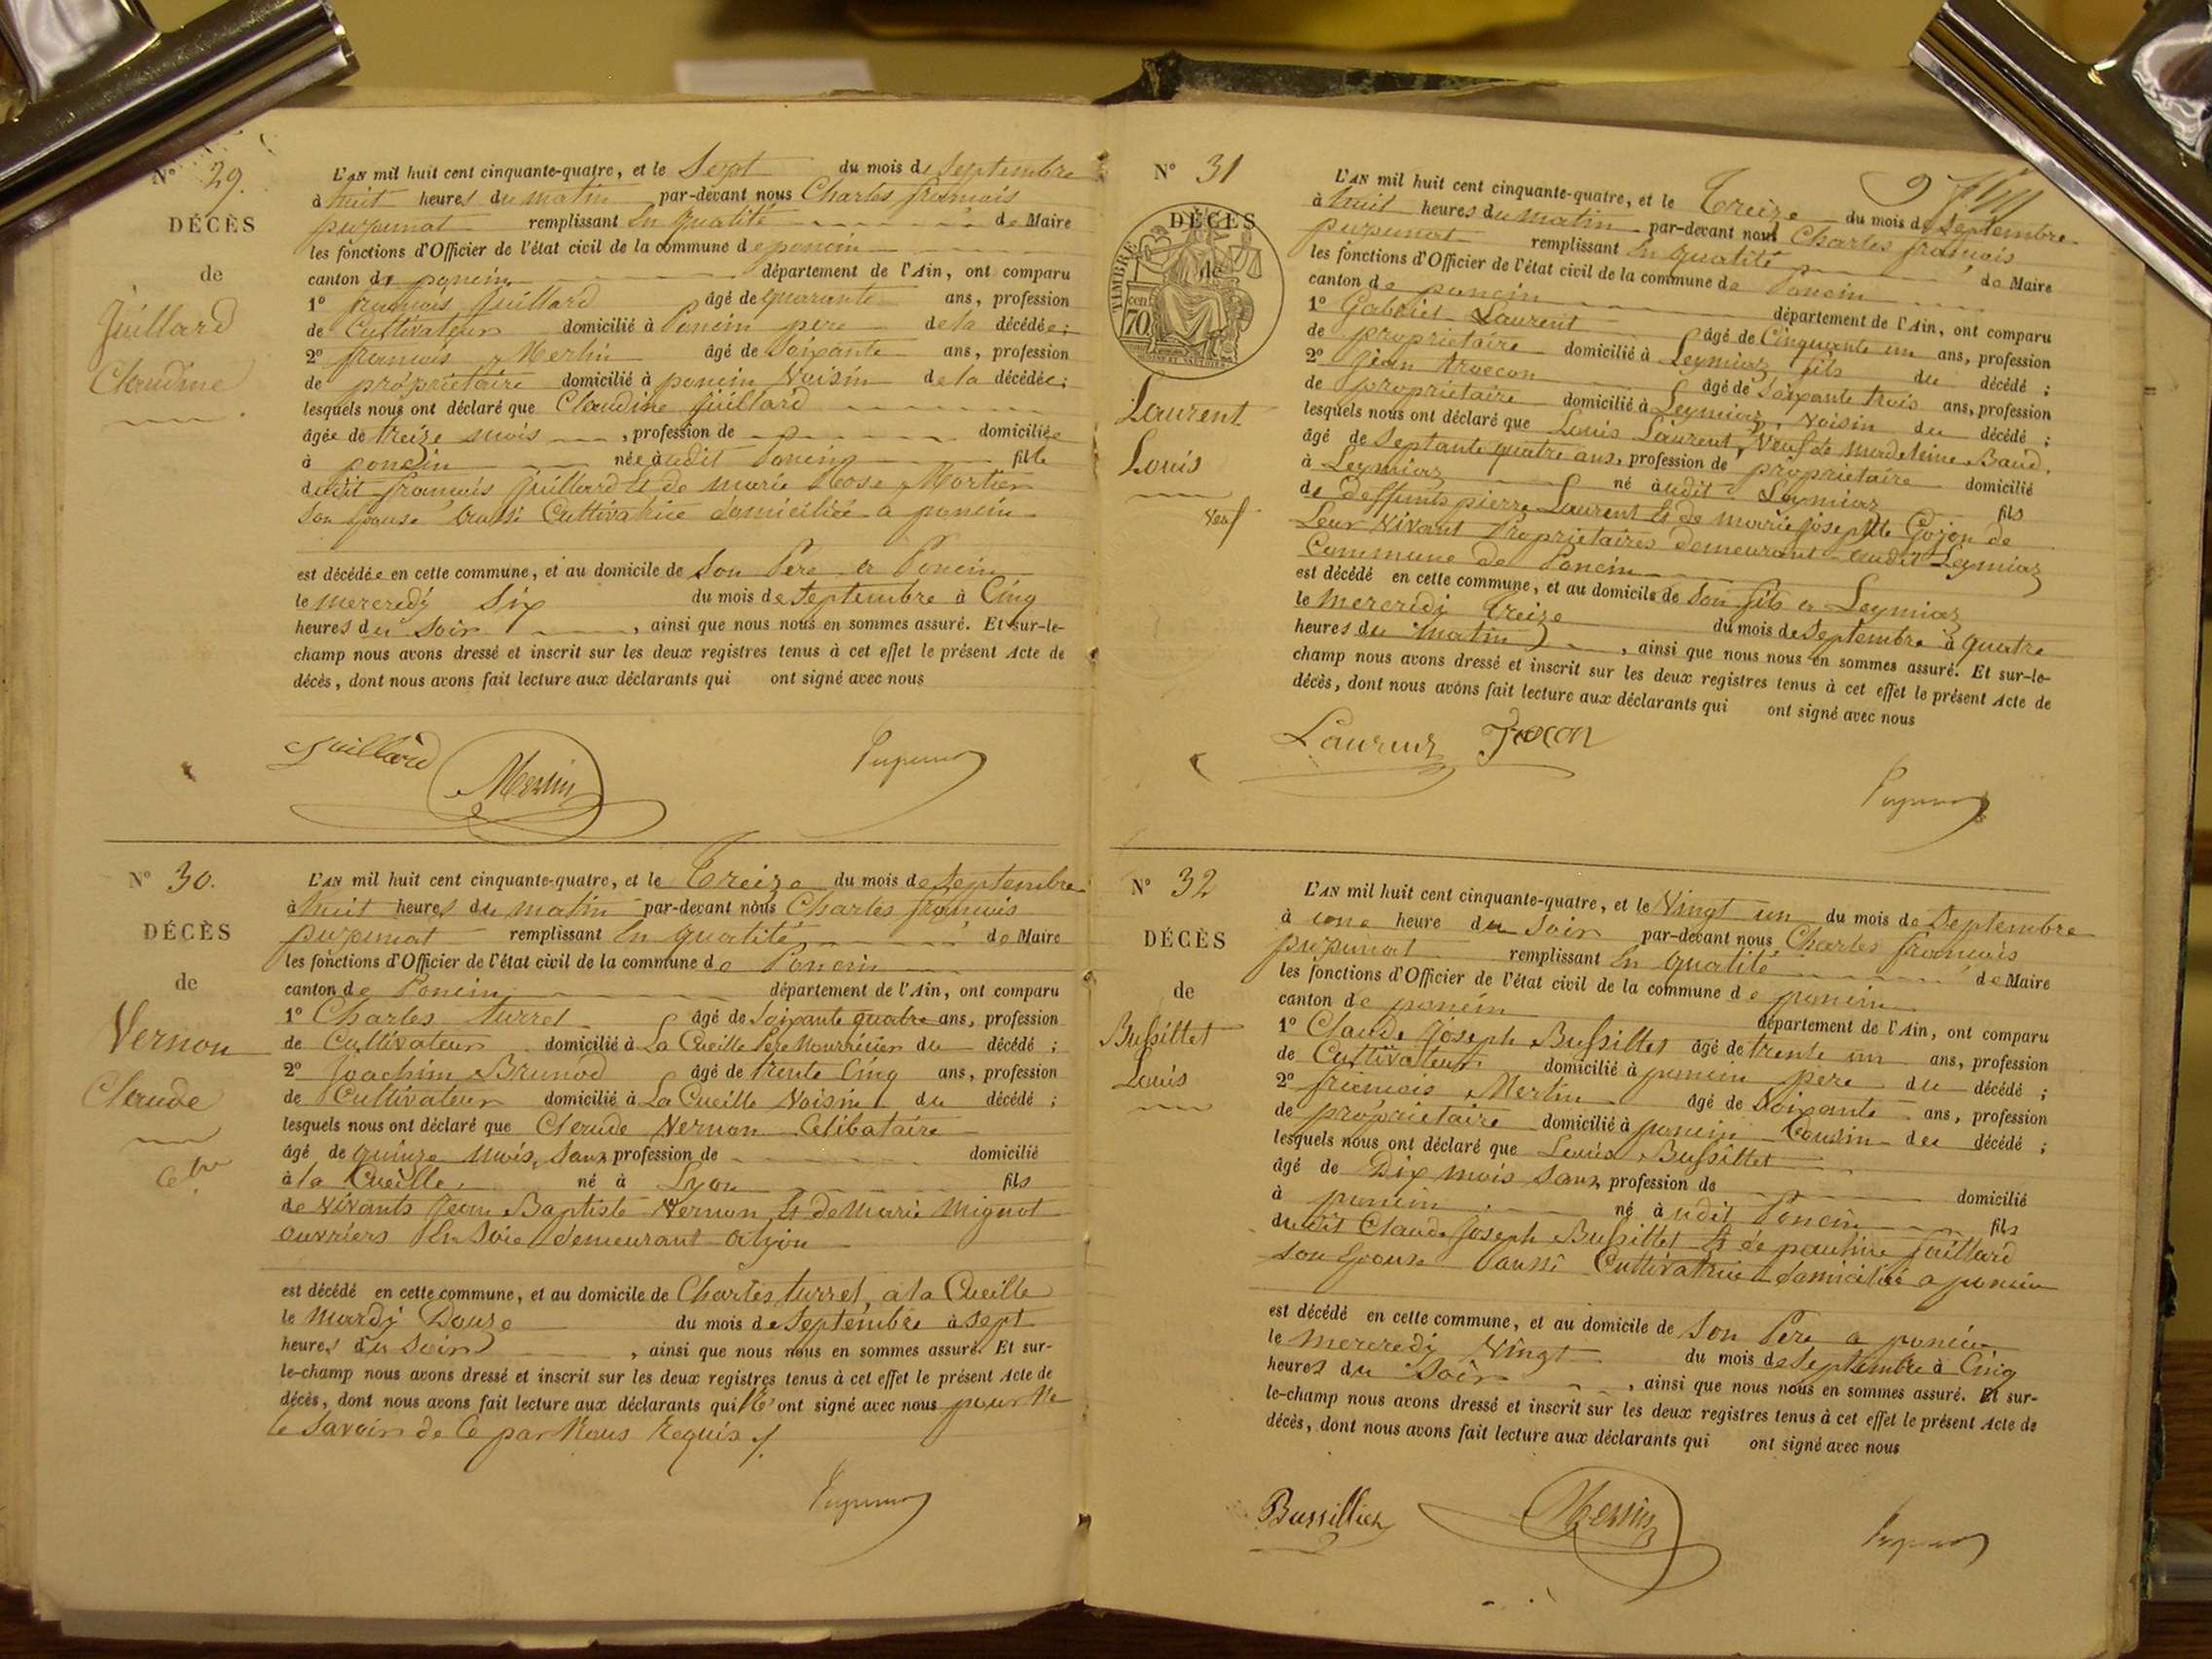 N° 29.
DÉCÈS
de
Juillard
Claudine
L'AN mil huit cent cinquante-quatre, et le Sept du mois de Septembre
à huit heures du matin par-devant nous Charles françois
pupunat remplissant En qualité de Maire
les fonctions d'Officier de l'état civil de la commune de poncin
canton de poncin département de l'Ain, ont comparu
1° françois Juillard âgé de quarante ans, profession
de Cultivateur domicilié à Poncin pere de la décédée;
2° françois Merlin âgé de Soixante ans, profession
de proprietaire domicilié à poncin Voisin de la décédée;
lesquels nous ont déclaré que Claudine Juillard
âgée de treize mois, profession de domiciliée
à poncin née audit Poncin fille
dudit françois Juillard et de marie Rose Mortier
Son Epouse aussi Cultivatrice domiciliée a poncin
est décédée en cette commune, et au domicile de Son Pere a Poncin
le mercredi Six du mois de Septembre à Cinq
heures du Soir, ainsi que nous nous en sommes assuré. Et sur-le-
champ nous avons dressé et inscrit sur les deux registres tenus à cet effet le présent Acte de
décès, dont nous avons fait lecture aux déclarants qui ont signé avec nous
Juillard Merlin Pupunat
N° 30.
DÉCÈS
de
Vernon
Claude
L'AN mil huit cent cinquante-quatre, et le Treize du mois de Septembre
à huit heures du matin par-devant nous Charles françois
pupunat remplissant En qualité de Maire
les fonctions d'Officier de l'état civil de la commune de Poncin
canton de Poncin département de l'Ain, ont comparu
1° Charles turrel âgé de Soixante quatre ans, profession
de Cultivateur domicilié à La Cueille Pere Nourricier du décédé;
2° Joachim Brunod âgé de trente Cinq ans, profession
de Cultivateur domicilié à La Cueille Voisin du décédé;
lesquels nous ont déclaré que Claude Vernon Célibataire
âgé de quinze mois, Sans profession de domicilié
à la Cueille né à Lyon fils
de vivants Jean Baptiste Vernon et de Marie Mignot
ouvriers En Soie demeurant a Lyon
est décédé en cette commune, et au domicile de Charles turrel, a la Cueille
le mardi Douze du mois de Septembre à sept
heures du Soir, ainsi que nous nous en sommes assuré. Et sur-
le-champ nous avons dressé et inscrit sur les deux registres tenus à cet effet le présent Acte de
décès, dont nous avons fait lecture aux déclarants qui N'ont signé avec nous pour Ne
le Savoir de Ce par Nous Requis
Pupunat
N° 31
DÉCÈS
de
TIMBRE
70
Laurent
Louis
Veuf
L'AN mil huit cent cinquante-quatre, et le Treize du mois de Septembre
à huit heures du matin par-devant nous Charles françois
pupunat remplissant En qualité de Maire
les fonctions d'Officier de l'état civil de la commune de Poncin
canton de poncin département de l'Ain, ont comparu
1° Gabriel Laurent âgé de Cinquante un ans, profession
de proprietaire domicilié à Leymiaz fils du décédé;
2° Jean âgé de Soixante trois ans, profession
de proprietaire domicilié à Leymiaz, Voisin du décédé;
lesquels nous ont déclaré que Louis Laurent, Veuf de madeleine Baud.
âgé de Septante quatre ans, profession de proprietaire domicilié
à Leymiaz né audit Leymiaz fils
de deffunts pierre Laurent et de marie josephte Gojon de
Leur Vivant Proprietaires demeurant audit Leymiaz
Commune de Poncin
est décédé en cette commune, et au domicile de Son fils a Leymiaz
le mercredi treize du mois de Septembre à quatre
heures du matin, ainsi que nous nous en sommes assuré. Et sur-le-
champ nous avons dressé et inscrit sur les deux registres tenus à cet effet le présent Acte de
décès, dont nous avons fait lecture aux déclarants qui ont signé avec nous
Laurent
Pupunat
N° 32
DÉCÈS
de
Bussillet
Louis
L'AN mil huit cent cinquante-quatre, et le Vingt un du mois de Septembre
à une heure du Soir par-devant nous Charles françois
pupunat remplissant En qualité de Maire
les fonctions d'Officier de l'état civil de la commune de poncin
canton de poncin département de l'Ain, ont comparu
1° Claude Joseph Bussillet âgé de trente un ans, profession
de Cultivateur domicilié à poncin pere du décédé;
2° françois Merlin âgé de Soixante ans, profession
de proprietaire domicilié à poncin Cousin du décédé;
lesquels nous ont déclaré que Louis Bussillet
âgé de Dix mois Sans profession de domicilié
à poncin né audit Poncin fils
dudit Claude Joseph Bussillet et de pauline Juillard
son Epouse aussi Cultivatrice domiciliée a poncin
est décédé en cette commune, et au domicile de Son Pere a poncin
le mercredi Vingt du mois de Septembre à Cinq
heures du Soir, ainsi que nous nous en sommes assuré. Et sur-
le-champ nous avons dressé et inscrit sur les deux registres tenus à cet effet le présent Acte de
décès, dont nous avons fait lecture aux déclarants qui ont signé avec nous
Bussillet Merlin Pupunat